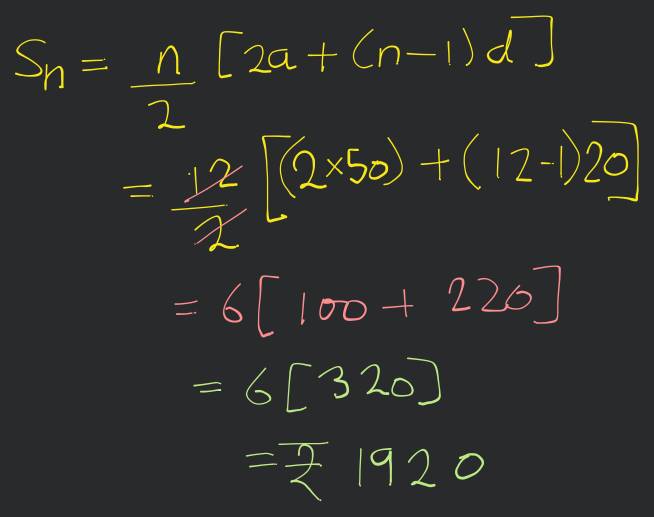 Sn = n/2 [2a + (n-1)d]
= 12/2 [(2×50) + (12-1)20]
= 6[100 + 220]
= 6[320]
= ₹ 1920